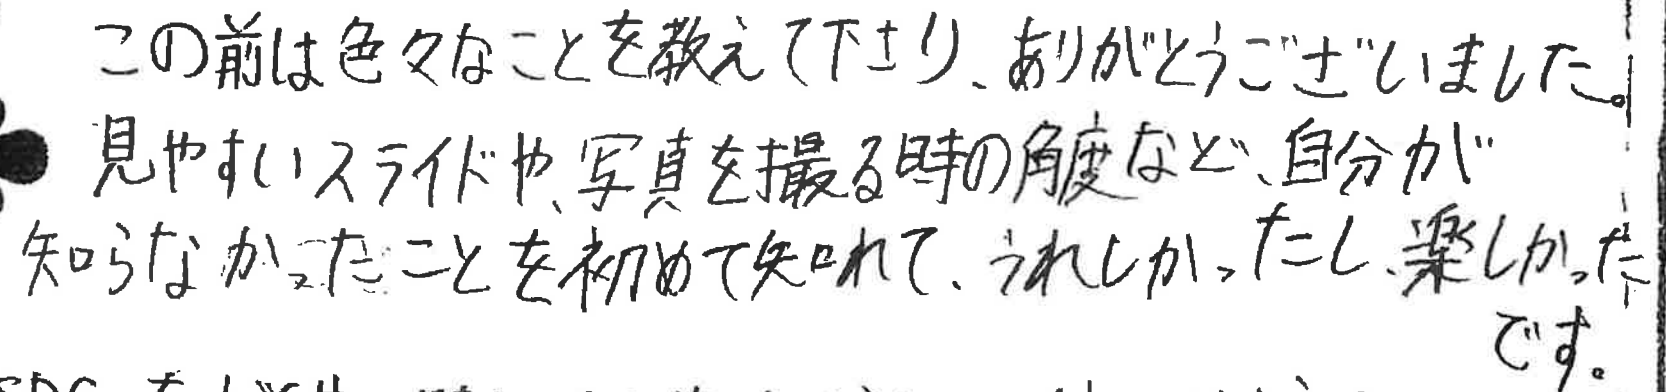 この前は色々なことを教えて下さり、ありがとうございました。
見やすいスライドや、写真を撮る時の角度など、自分が
知らなかったことを初めて知れて、うれしかったし、楽しかった
です。